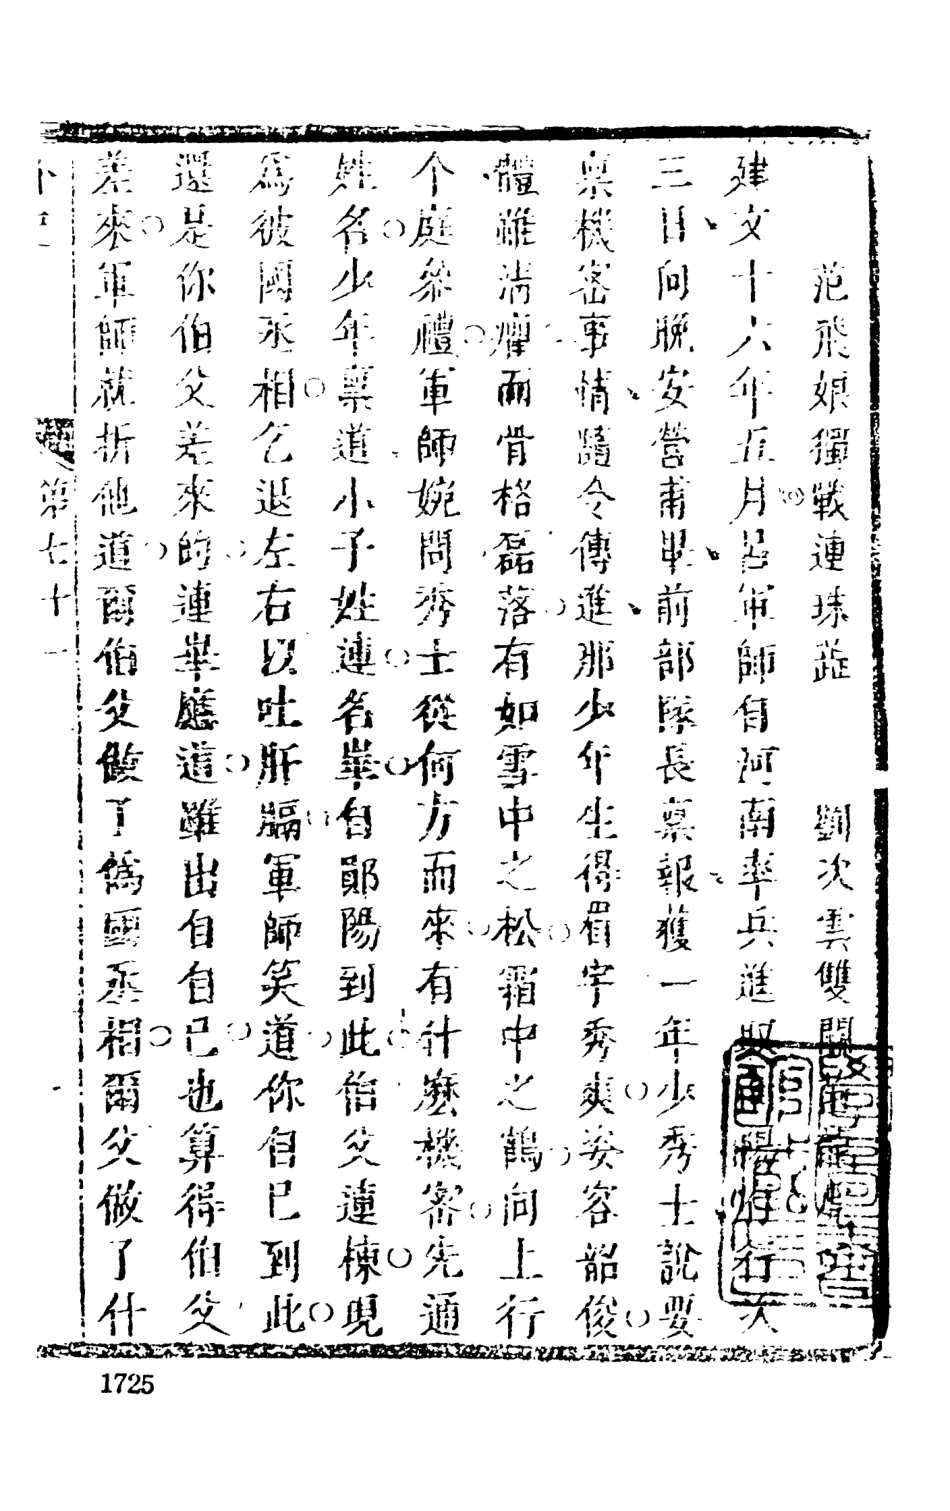 范飛娘獨戰連珠蕋　劉次雲雙鬬
建文十六年五月呂軍師自河南率兵進取陽行次
三日向晚安營甫畢前部隊長稟報獲一年少秀士說要
稟機密事情隨令傳進那少年生得眉宇秀爽姿容韶俊
體雖清癯而骨格磊落有如雪中之松霜中之鶴向上行
个庭叅禮軍師婉問秀士從何方而來有什麽機密先通
姓名少年稟道小子姓連名華自鄖陽到此伯父連棟現
爲彼國丞相乞退左右以吐肝膈軍師笑道你自已到此
還是你伯父差來的連華應道雖出自自已也算得伯父
差來軍師就折他道爾伯父做了僞國丞相爾父做了什
外史
第七十一
1725